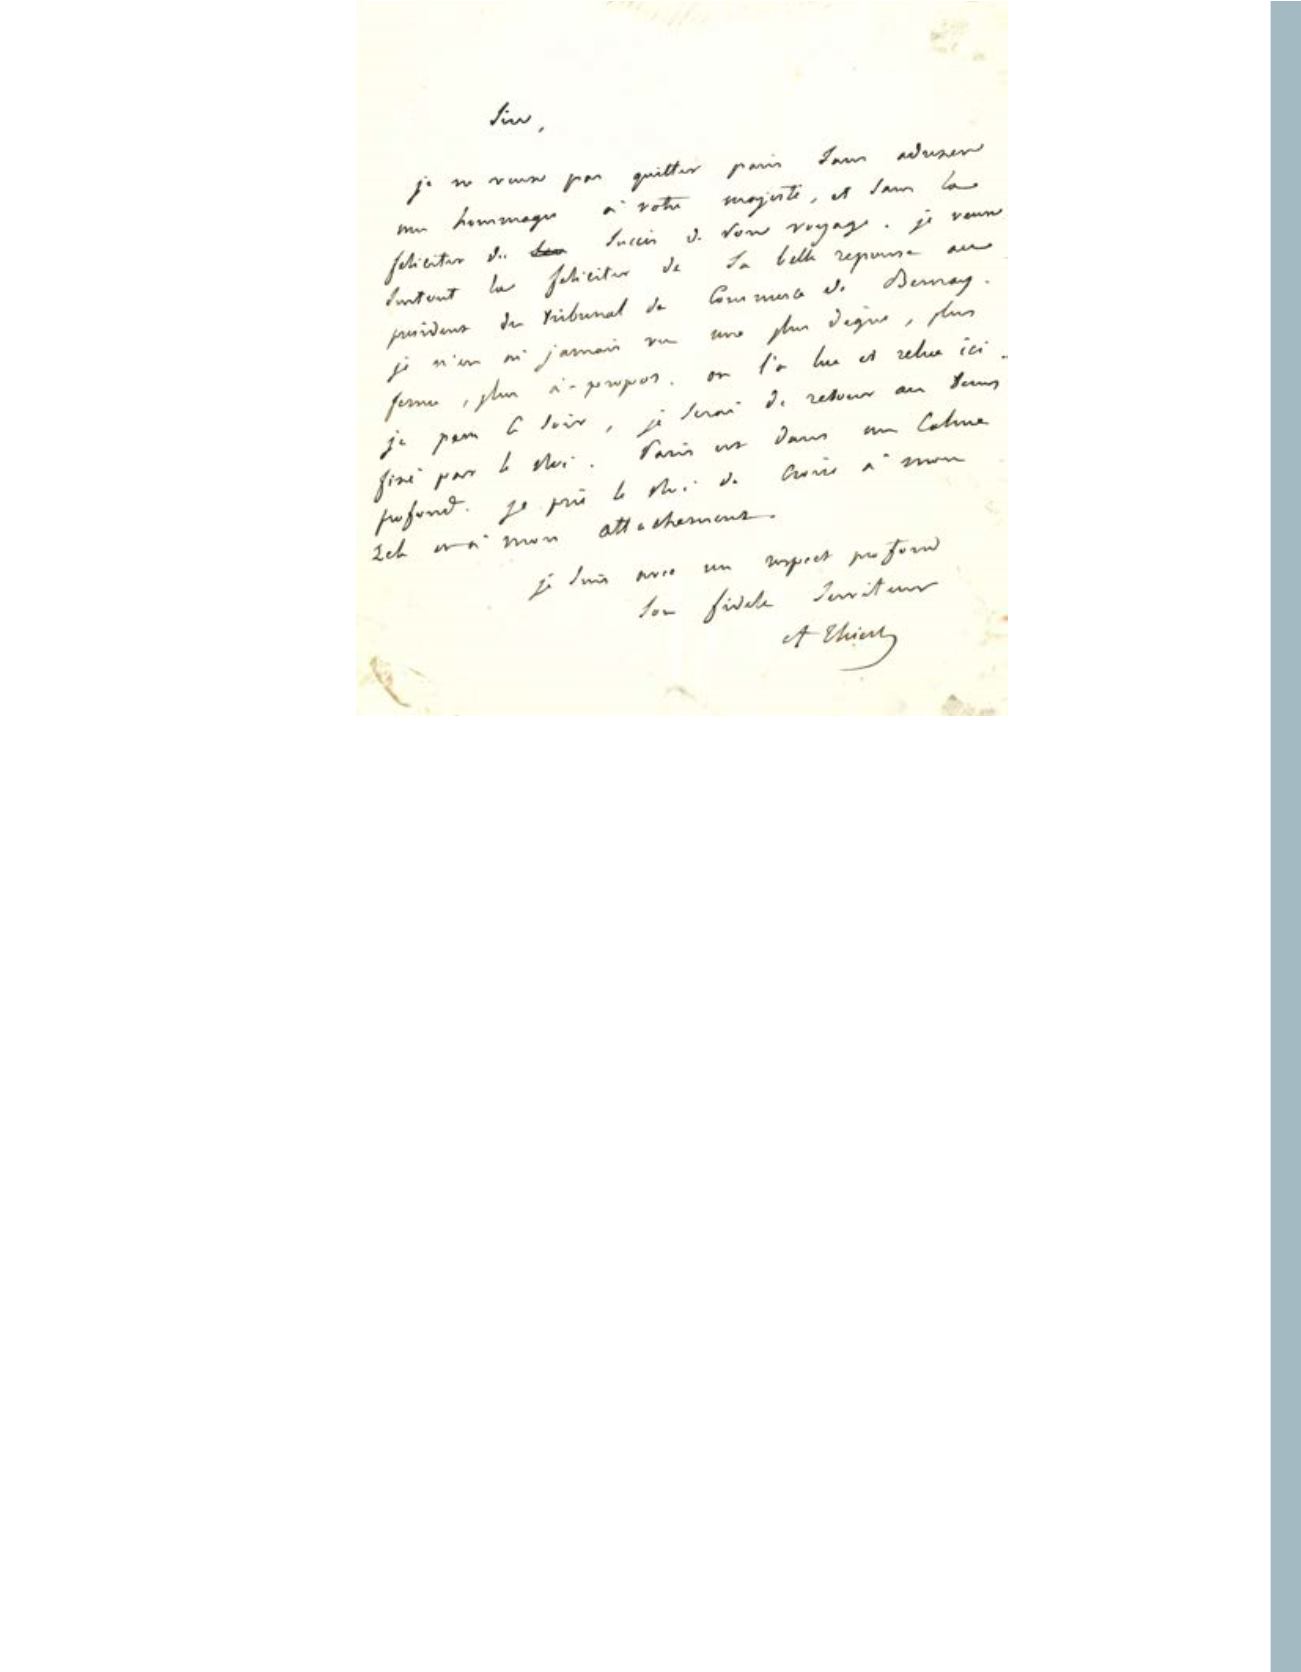 Sire,
je ne veux pas quitter paris sans adresser
mes hommages à votre majesté, et sans la
feliciter du succès de son voyage. je veux
surtout la feliciter de sa belle reponse au
president du tribunal de Commerce de Bernay.
je n'en ai jamais vu une plus digne, plus
ferme, plus à-propos. on l'a lue et relue ici.
je pars ce soir, je serai de retour au tems
fixé par le Roi. Paris est dans un Calme
profond. je prie le Roi de croire à mon
zele et à mon attachement.
je suis avec un respect profond
son fidele serviteur
A Thiers